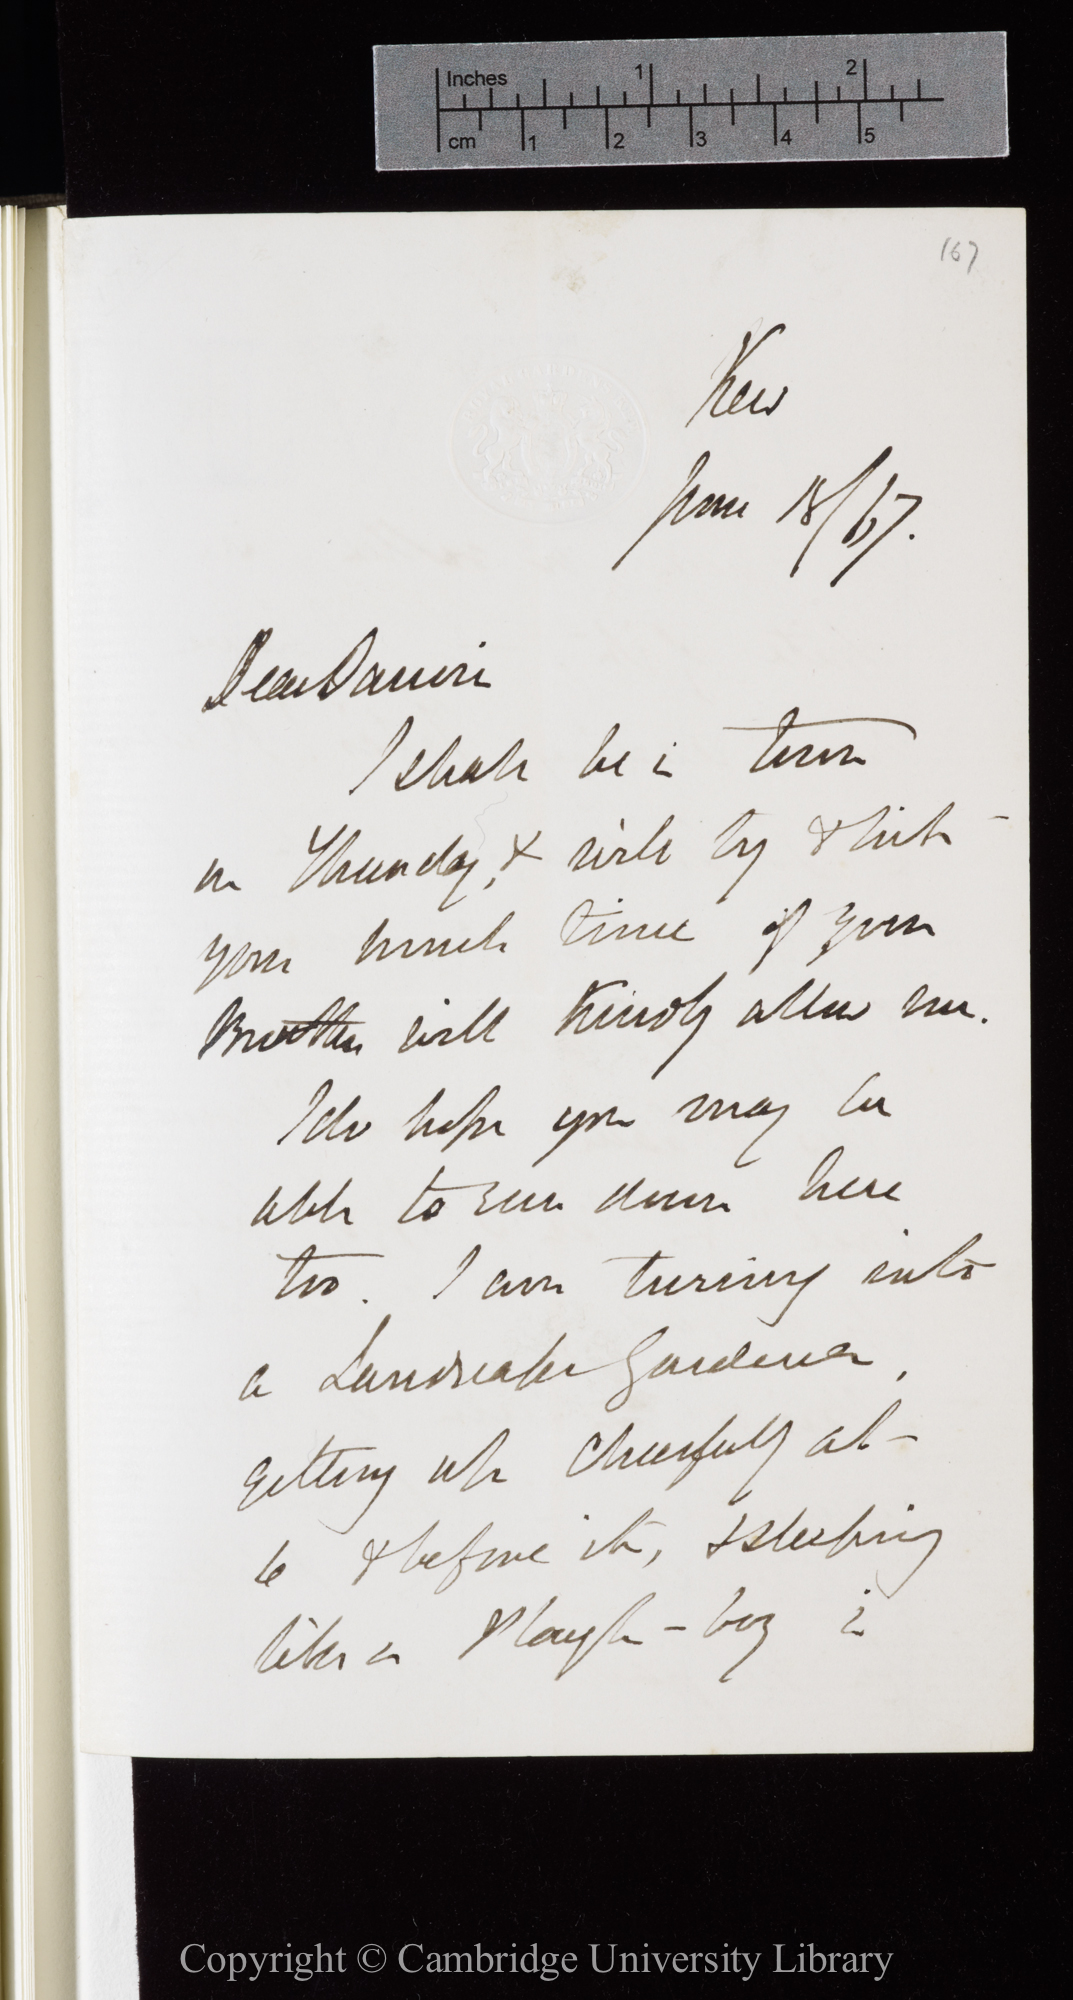 Inches 1 2
cm 1 2 3 4 5
167
Kew
June 18/67.
Dear Darwin
I shall be in town
on Thursday, & will try & hit
your lunch time if your
Brother will kindly allow me.
I do hope you may be
able to run down here
too. I am turning into
a Landscape Gardener,
getting up cheerfully at
6 & before it, & sleeping
like a Plough-boy in
Copyright © Cambridge University Library